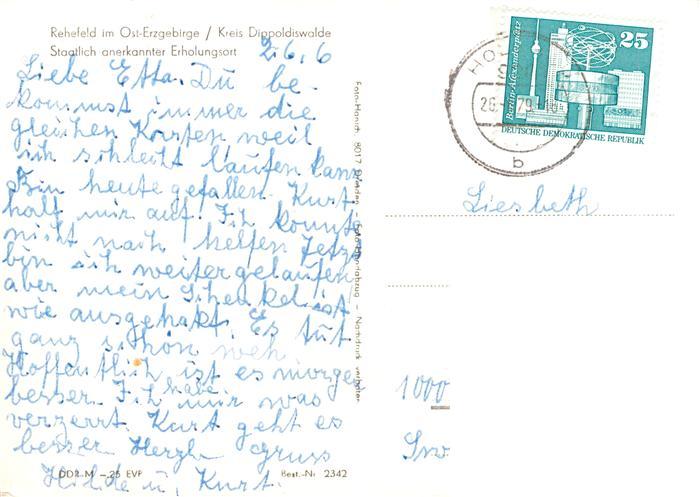 Rehefeld im Ost-Erzgebirge / Kreis Dippoldiswalde
Staatlich anerkannter Erholungsort
2.6.6
Liebe Etta. Du be-
kommst immer die
gleichen Karten weil
ich schlecht laufen kann
Bin heute gefallen. Kurt
half mir auf. Ich konnte
nicht nach helfen Jetzt
bin ich weitergelaufen
aber mein Schenkel ist
wie ausgehakt. Es tut
ganz schön weh
Hoffentlich ist es morgen
besser. Ich habe mir was
verzerrt. Kurt geht es
besser Herzl. Gruss
Hilde u. Kurt.
DDR-M -,25 EVP
Best.-Nr 2342
8017 Dresden - Foto-Handabzug - Nachdruck verboten
Berlin-Alexanderplatz
25
DEUTSCHE DEMOKRATISCHE REPUBLIK
26.
79
b
Liesbeth
1000